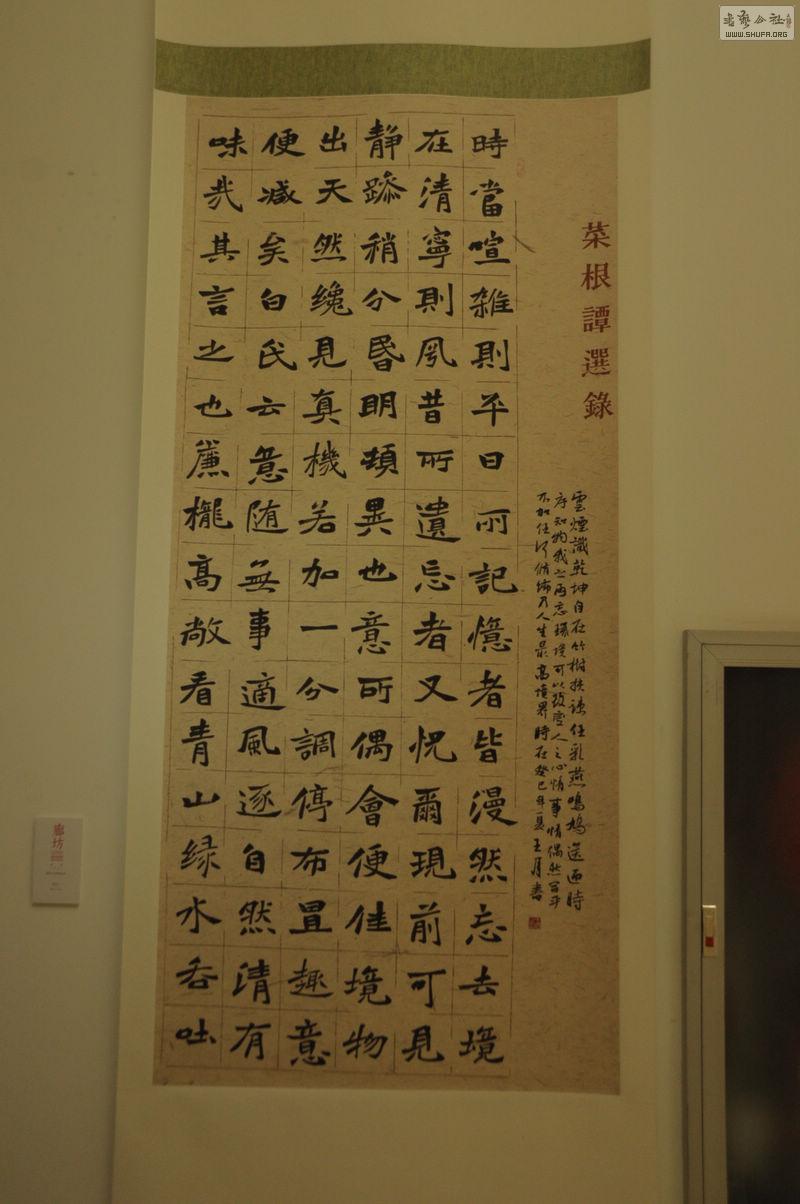 菜根譚選錄
時當喧雜則平日所記憶者皆漫然忘去境
在清寧則夙昔所遺忘者又怳爾現前可見
静躁稍分昏明頓異也意所偶會便佳境物
出天然纔見真機若加一分調停布置趣意
便减矣白氏云意随無事適風逐自然清有
味哉其言之也簾櫳高敞看青山緑水吞吐
雲煙識乾坤自在竹樹扶疎任乳燕鳴鳩送迎時
序知物我之兩忘環境可以改變人之心情事情偶然
不加任何修飾乃人生最高境界時在癸巳年夏王月書
廊坊
書藝公社
WWW.SHUFA.ORG